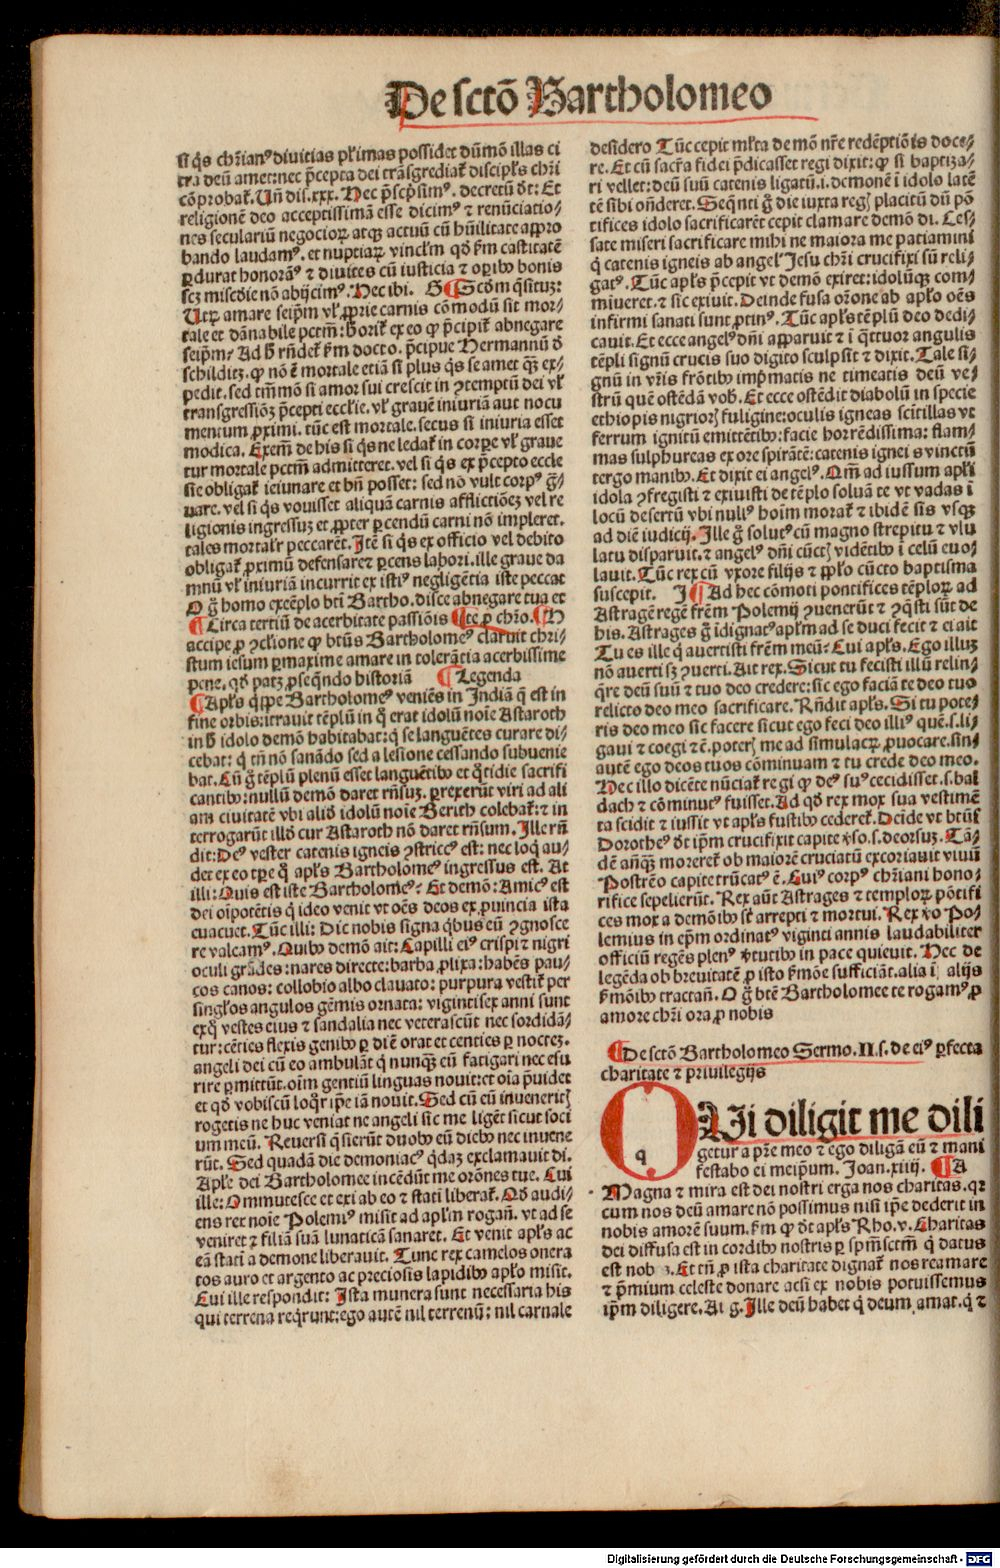 De sctō Bartholomeo
si q̄s chr̄ianꝰ diuitias pl'imas possidet dūmō illas ci
tra deū amet: nec p̄cepta dei trāsgrediat̄ discipl's chr̄i
cōprobat̄. Vn̄ dis. xxx. Nec p̄scpsimꝰ. decretū d̄t: Et
religionē deo acceptissimā esse dicimꝰ ⁊ renūciatio-
nes seculariū negocioꝝ atqꝫ actuū cū hūilitate appro
bando laudamꝰ. et nuptiaꝝ vincl'm qd̄ s̄m castitatē
ꝑdurat honoram̄ꝰ ⁊ diuites cū iusticia ⁊ oꝑibꝰ bonis
scꝫ misc̄die nō abijcimꝰ. Hec ibi. G ¶ Sc̄dm q̄situꝫ:
Utꝝ amare seip̄m vl' ꝓprie carnis cōmodū sit mor-
tale et dānabile pctm̄: h̄ orit̄ ex eo ꝙ p̄cipit̄ abnegare
seip̄m? Ad h̄ rn̄det̄ s̄m docto. p̄cipue Hermannū d̄
schilditꝫ. ꝙ nō ē mortale etiā si plus q̄s se amet qꝫ ex-
pedit. sed tm̄mō si amor sui crescit in ꝯtemptū dei vl'
transgressiōꝫ p̄cepti eccl'ie. vl' grauē iniuriā aut nocu
mentum ꝓximi. tūc est mortale. secus si iniuria esset
modica. Exem̄ de his si q̄s ne ledat̄ in corꝑe vl' graue
tur mortale pctm̄ admitteret. vel si q̄s ex p̄cepto eccle
sie obligat̄ ieiunare et bn̄ posset: sed nō vult corpꝰ g̃-
uare. vel si q̄s vouisset aliquā carnis afflictiōeꝫ vel re
ligionis ingressuꝫ et ꝓpter ꝑcendū carni nō impleret.
tales mortal'r peccarēt. Itē si q̄s ex officio vel debito
obligat̄ ꝓximū defensare ⁊ ꝑcens labori. ille graue da
mnū vl' iniuriā incurrit ex istiꝰ negligētia iste peccat
O g̃ homo exēplo bt̄i Bartho. disce abnegare tua et
¶ Circa tertiū de acerbitate passiōis ¶ te ꝓ chr̄o. ¶ H
accipe ꝓ ꝯclione ꝙ bt̄us Bartholomeꝰ claruit chri-
stum iesum ꝑmaxime amare in tolerātia acerbissime
pene. qd̄ patꝫ ꝓseq̄ndo historiā ¶ Legenda
¶ Apl's q̄ppe Bartholomeꝰ veniēs in Indiā q̄ est in
fine orbis: itrauit tēplū in q̄ erat idolū noīe Astaroth
in h̄ idolo demō habitabat: q̄ se languētes curare di-
cebat: q̄ tn̄ nō sanādo sed a lesione cessando subuenie
bat. Cū g̃ tēplū plenū esset languētibꝰ et q̄tidie sacrifi
cantibꝰ: nullū demō daret rn̄suꝫ. ꝑrexerūt viri ad ali
am ciuitatē vbi aliō idolū noīe Berith colebat̄: ⁊ in
terrogarūt illd̄ cur Astaroth nō daret rn̄sum. Ille rn̄
dit: Deꝰ vester catenis igneis ꝯstrictꝰ est: nec loq̄ au-
det ex eo tꝑe q̄ apl's Bartholomeꝰ ingressus est. At
illi: Quis est iste Bartholomeꝰ? Et demō: Amicꝰ est
dei oīpotētis q̄ ideo venit vt oēs deos ex ꝓuincia ista
euacuet. Tūc illi: Dic nobis signa q̄bus eū ꝯgnosce
re valeamꝰ. Quibꝰ demō ait: Capilli eiꝰ crispi ⁊ nigri
oculi grādes: nares directe: barba ꝓlixa: habēs pau-
cos canos: collobio albo clauato: purpura vestit̄ per
singl'os angulos gēmis ornata: vigintisex anni sunt
exq̄ vestes eius ⁊ sandalia nec veterascūt nec sordidā-
tur: cēties flexis genibꝰ ꝑ diē orat et centies ꝑ noctēꝫ.
angeli dei cū eo ambulāt q̄ nunqꝫ eū fatigari nec esu
rire ꝑmittūt. oīm gentiū linguas nouit: et oīa p̄uidet
et qd̄ vobiscū loq̄r ip̄e iā nouit. Sed cū eū inueneritꝫ
rogetis ne huc veniat ne angeli sic me ligēt sicut soci
um meū. Reuersi q̄sierūt duobꝰ eū diebꝰ nec inuene
rūt. Sed quadā die demoniacꝰ q̄daꝫ exclamauit di.
Apl'e dei Bartholomee incēdūt me orōnes tue. Cui
ille: Ommutesce et exi ab eo ⁊ stati liberat̄. Qd̄ audi-
ens rex noīe Polemiꝰ misit ad apl'm rogan̄. vt ad se
veniret ⁊ filiā suā lunaticā sanaret. Et venit apl's ac
eā statī a demone liberauit. Tunc rex camelos onera
tos auro et argento ac preciosis lapidibꝰ apl'o misit.
Cui ille respondit: Ista munera sunt necessaria his
qui terrena req̄runt: ego autē nil terrenū: nil carnale
desidero Tūc cepit ml'ta de mō nr̄e redēptiōis doce-
re. Et cū sacra fidei p̄dicasset regi dixit: ꝙ si baptiza-
ri vellet: deū suū catenis ligatū. i. demonē ī idolo latē
tē sibi on̄deret. Seq̄nti g̃ die iuxta regꝭ placitū dū pō
tifices idolo sacrificarēt cepit clamare demō di. Ces-
sate miseri sacrificare mihi ne maiora me patiamini
q̄ catenis igneis ab angel' Jesu chr̄i crucifixi sū reli-
gatꝰ. Tūc apl's p̄cepit vt demō exiret: idolūqꝫ com-
minueret. ⁊ sic exiuit. Deinde fusa or̄one ab apl'o oēs
infirmi sanati sunt ꝓtinꝰ. Tūc apl's tēplū deo dedi-
cauit. Et ecce angelꝰ dn̄i apparuit ⁊ ī q̄ttuor angulis
tēpli signū crucis suo digito sculpsit ⁊ dixit. Tale si-
gnū in vr̄is frōtibꝰ imp̄matis ne timeatis deū ve-
strū quē ostēdā vob̄. Et ecce ostēdit diabolū in specie
ethiopis nigrioꝝ fuligine: oculis igneas scitillas vt
ferrum ignitū emittētibꝰ: facie horrēdissima: flam-
mas sulphureas ex ore spirātē: catenis igneis vinctū
tergo manibꝰ. Et dixit ei angelꝰ. Qm̄ ad iussum apl'i
idola ꝯfregisti ⁊ exiuisti de tēplo soluā te vt vadas ī
locū desertū vbi nullꝰ hoīm morat̄ ⁊ ibidē sis vsqꝫ
ad diē iudicij. Ille g̃ solutꝰ cū magno strepitu ⁊ vlu
latu disparuit. ⁊ angelꝰ dn̄i cūctꝭ vidētibꝰ ī celū euo-
lauit. Tūc rex cū vxore filijs ⁊ ppl'o cūcto baptisma
suscepit. I ¶ Ad hec cōmoti pontifices tēploꝝ ad
Astragē regē frēm Polemij ꝯuenerūt ⁊ ꝯq̄sti sūt de
his. Astrages g̃ idignatꝰ apl'm ad se duci fecit ⁊ ei ait
Tu es ille q̄ auertisti frēm meū? Cui apl's. Ego illuꝫ
nō auerti sꝫ ꝯuerti. Ait rex. Sicut tu fecisti illū relin-
q̄re deū suū ⁊ tuo deo credere: sic ego faciā te deo tuo
relicto deo meo sacrificare. Rn̄dit apl's. Si tu pote-
ris deo meo sic facere sicut ego feci deo illiꝰ quē. s. li-
gaui ⁊ coegi ⁊ē. poterꝭ me ad simulacꝝ ꝓuocare. sin
autē ego deos tuos cōminuam ⁊ tu crede deo meo.
Hec illo dicēte nūciat̄ regi ꝙ deꝰ suꝰ cecidisset. s. bal
dach ⁊ cōminutꝰ fuisset. Ad qd̄ rex mox sua vestimē
ta scidit ⁊ iussit vt apl's fustibꝰ cederet̄. Deīde vt btūs
Dorotheꝰ d̄t ip̄m crucifixit capite v̄so. s. deorsuꝫ. Tā-
dē anq̄ꝫ moreret̄ ob maiorē cruciatū excoriauit viuū
Postrēo capite trūcatꝰ ē. Cuiꝰ corpꝰ chr̄iani hono-
rifice sepelierūt. Rex aūt Astrages ⁊ temploꝝ pōtifi
ces mox a demōibꝰ st̄ arrepti ⁊ mortui. Rex v̄o Po-
lemius in ep̄m ordinatꝰ viginti annis laudabiliter
officiū regēs plenꝰ v̄tutibꝰ in pace quieuit. Hec de
legēda ob breuitatē ꝓ isto s̄mōe sufficiāt. alia ī alijs
s̄mōibꝰ tractan̄. O g̃ bt̄e Bartholomee te rogamꝰ ꝓ
amore chr̄i ora ꝓ nobis
¶ De sctō Bartholomeo Sermo. II. s. de eiꝰ ꝑfecta
charitate ⁊ priuilegijs
QUi diligit me dili
getur a pr̄e meo ⁊ ego diligā eū ⁊ mani
festabo ei meip̄um. Joan. xiiij. ¶ A
Magna ⁊ mira est dei nostri erga nos charitas. qꝛ
cum nos deū amare nō possimus nisi ip̄e dederit in
nobis amorē suum. s̄m ꝙ d̄t apl's Rho. v. Charitas
dei diffusa est in cordibꝰ nostris ꝑ spm̄sctm̄ q̄ datus
est nob̄ ꝫ. Et tn̄ ꝓ ista charitate dignat̄ nos reamare
⁊ p̄mium celeste donare acsi ex nobis potuissemus
ip̄m diligere. Ai g. Ille deū habet q̄ deum amat. q̄ ⁊
q
Digitalisierung gefördert durch die Deutsche Forschungsgemeinschaft - DFG